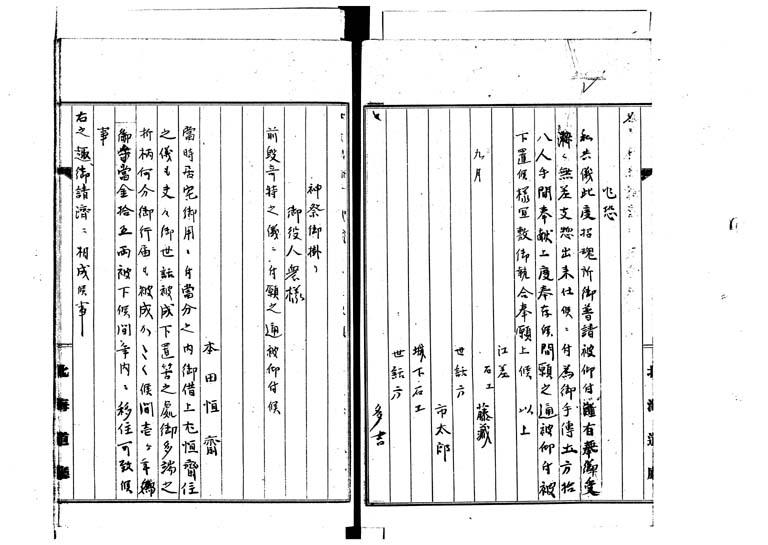 乍恐
私共儀此度招魂所御普請被仰付難有奉承
済ミ無差支惣出来仕候ニ付為御手傳土方拾
八人手間奉献上度奉存候間願之通被仰付被
下置候様宜敷御執合奉願上候 以上
九月
江差
石工
藤蔵
世話方
市太郎
城下石工
世話方
多吉
神祭御掛リ
御役人衆様
前段奇特之儀ニ付願之通被仰付候
本田恒齋
當時居宅御用ニ付當分之内御借上尤恒齋住
之儀も夫々御世話被成下置筈之處御多端之
折柄何分御行届も被成かたく候間壱ヶ年
御手當金拾五両被下候間年内ニ移住可致候
事
右之趣御請済ニ相成候事
北海道廳